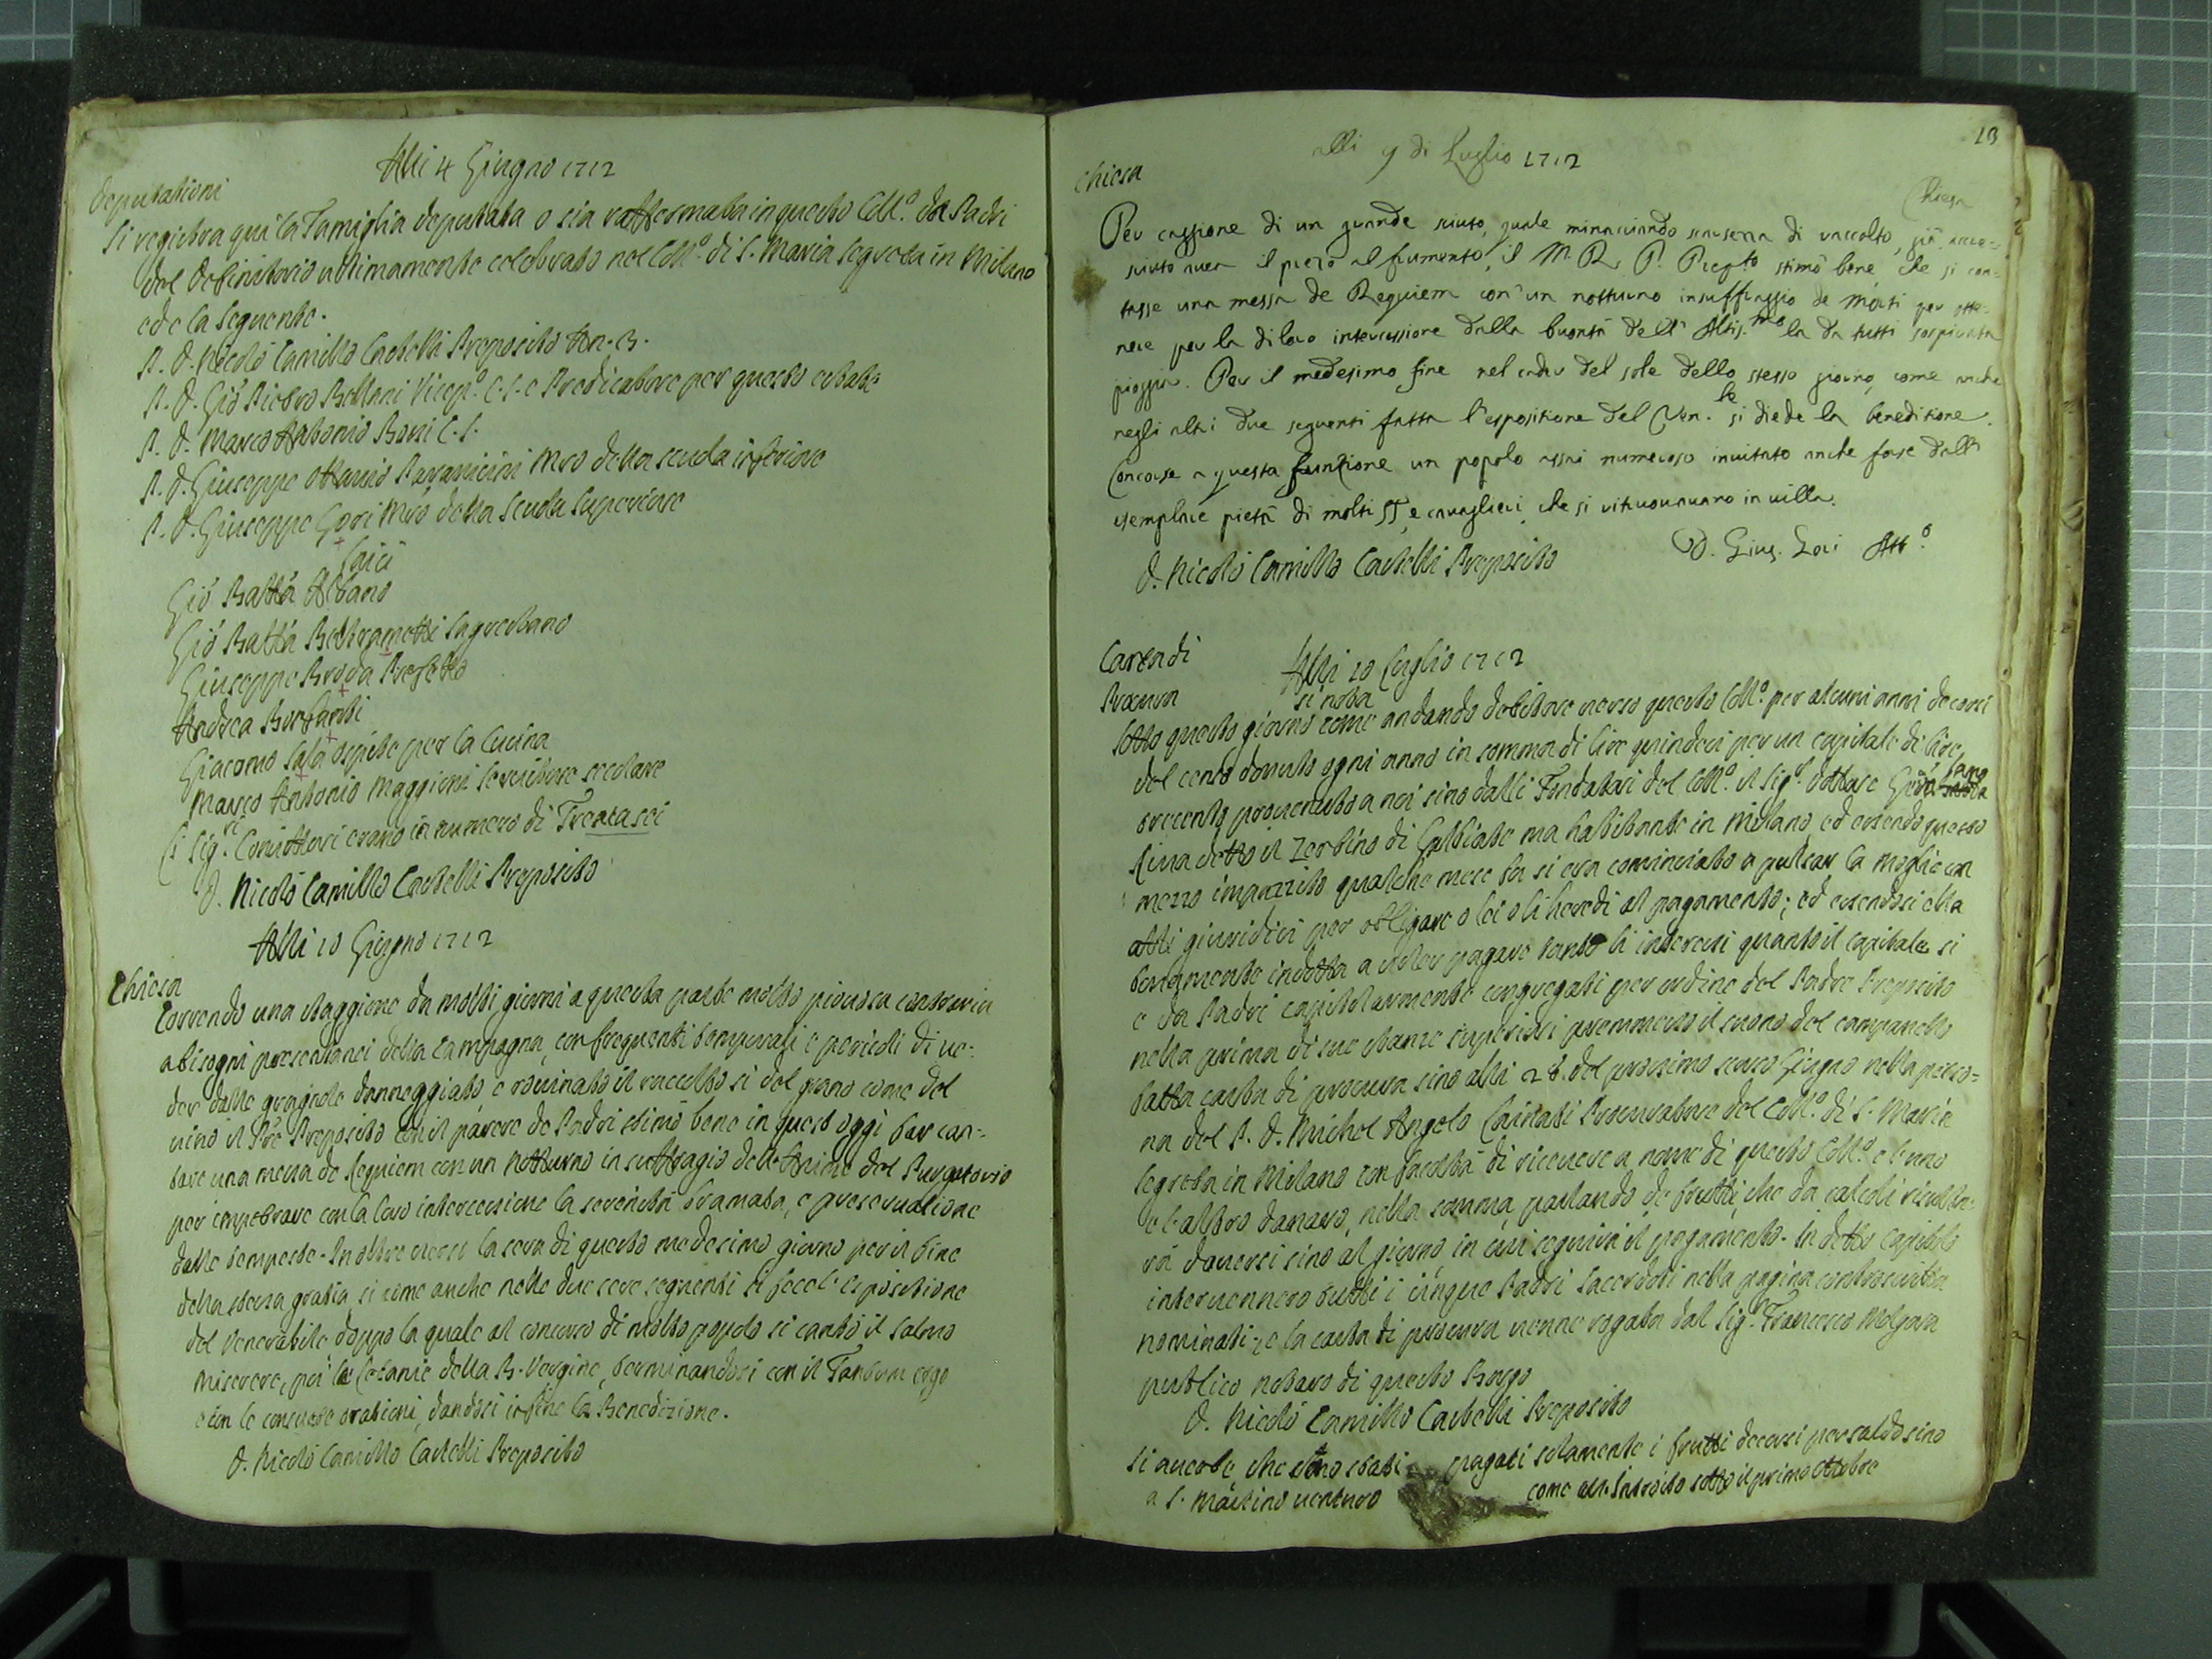 Alli 4 Giugno 1712
Deputationi
Si registra qui la Famiglia deputata o sia raffermata in questo Coll.º da Padri
del Definitorio ultimamente celebrato nel Coll.º di S. Maria Segreta in Milano
ed e la seguente.
P. D. Nicolò Camillo Castelli Preposito An. 3.
P. D. Gio Pietro Bellani Vicep.º C. S. e Predicatore per questa estate
P. D. Marco Antonio Rossi C. S.
P. D. Giuseppe Ottavio Paravicini Mro della scuola inferiore
P. D. Giuseppe Gori Mro della Scuola Superiore
Laici
Gio Batta Albano
Gio Batta Beltrametti Sagrestano
Giuseppe Broda Prefetto
Andrea Borfanti
Giacomo Sala ospite per la Cucina
Marco Antonio Maggioni Servitore secolare
Li Sig.ri Convittori erano in numero di Trentasei
D. Nicolò Camillo Castelli Preposito
Alli 10 Giugno 1712
Chiesa
Correndo una staggione da molti giorni a questa parte molto piovosa contraria
a bisogni presentanei della campagna, con frequenti temporali e pericoli di ve-
der dalle gragnole danneggiato, e rovinato il raccolto si del grano come del
vino il Pre Preposito con il parere de Padri stimò bene in quest'oggi far can-
tare una messa de Requiem con un Notturno in suffragio dell'Anime del Purgatorio
per impetrare con la loro intercessione la serenità bramata, e preservatione
dalle tempeste. In oltre verso la sera di questo medesimo giorno per il fine
della stessa gratia, si come anche nelle due sere seguenti si fece l'espositione
del Venerabile doppo la quale al concorso di molto popolo si cantò il salmo
Miserere, poi le Letanie della B. Vergine, terminandosi con il Tantum ergo
e con le consuete orationi, dandosi infine la Benedizione.
D. Nicolò Camillo Castelli Preposito
13
alli 9 di Luglio 1712
Chiesa
Chiesa
Per caggione di un grande sciuto, quale minacciando scarsezza di raccolto, già accre-
sciuto avea il prezo al frumento, il M. R. P. Prep.to stimò bene che si can-
tasse una messa de Requiem con un notturno in suffraggio de morti per otte-
nere per la di loro intercessione dalla buontà dell' Altis.mo la da tutti sospirata
pioggia. Per il medesimo fine nel cader del sole dello stesso giorno, come anche
negli altri due seguenti fatta l'espositione del Ven.le si diede la beneditione.
Concorse a questa funzione un popolo assai numeroso invitato anche forse dall'
esemplare pietà di molti SS.ri e cavaglieri, che si ritrovavano in villa.
D. Gius. Gori Att.º
D. Nicolò Camillo Castelli Preposito
Carta di
Procura
Alli 10 Luglio 1712
si nota
Sotto questo giorno come andando debitore verso questo Coll.º per alcuni anni decorsi
del censo dovuto ogni anno in somma di lire quindeci per un capitale di lire
trecento provenuto a noi sino dalli Fondatori del Coll.º il Sig.r Dottore Gio
Riva detto il Zerbino di Galbiate ma habitante in Milano, ed essendo questo
mezzo impazzito qualche mese fa si era cominciato a pulsar la moglie con
atti giuridici per obligare o lei o li heredi al pagamento; ed essendosi ella
finalmente indotta a voler pagare tanto li interessi quanto il capitale si
e da Padri capitolarmente congregati per ordine del Padre Preposito
nella prima di sue stanze superiori premmesso il suono del campanello
fatta carta di procura sino alli 28. del prossimo scorso Giugno nella perso-
na del P. D. Michel Angelo Cairati Procuratore del Coll.º di S. Maria
Segreta in Milano con facoltà di ricevere a nome di questo Coll.º e l'uno
e l'altro danaro, nella somma, parlando de frutti, che da calcoli risulta-
rà doversi sino al giorno, in cui seguirà il pagamento. In detto capitolo
intervennero tutti i cinque Padri Sacerdoti nella pagina controscritta
nominati, e la carta di procura venne rogata dal Sig.r Francesco Molgora
publico notaro di questo Borgo
D. Nicolò Camillo Castelli Preposito
Si averte, che sono stati pagati solamente i frutti decorsi per saldo sino
a S. Martino venturo come all'Introito sotto il primo Ottobre